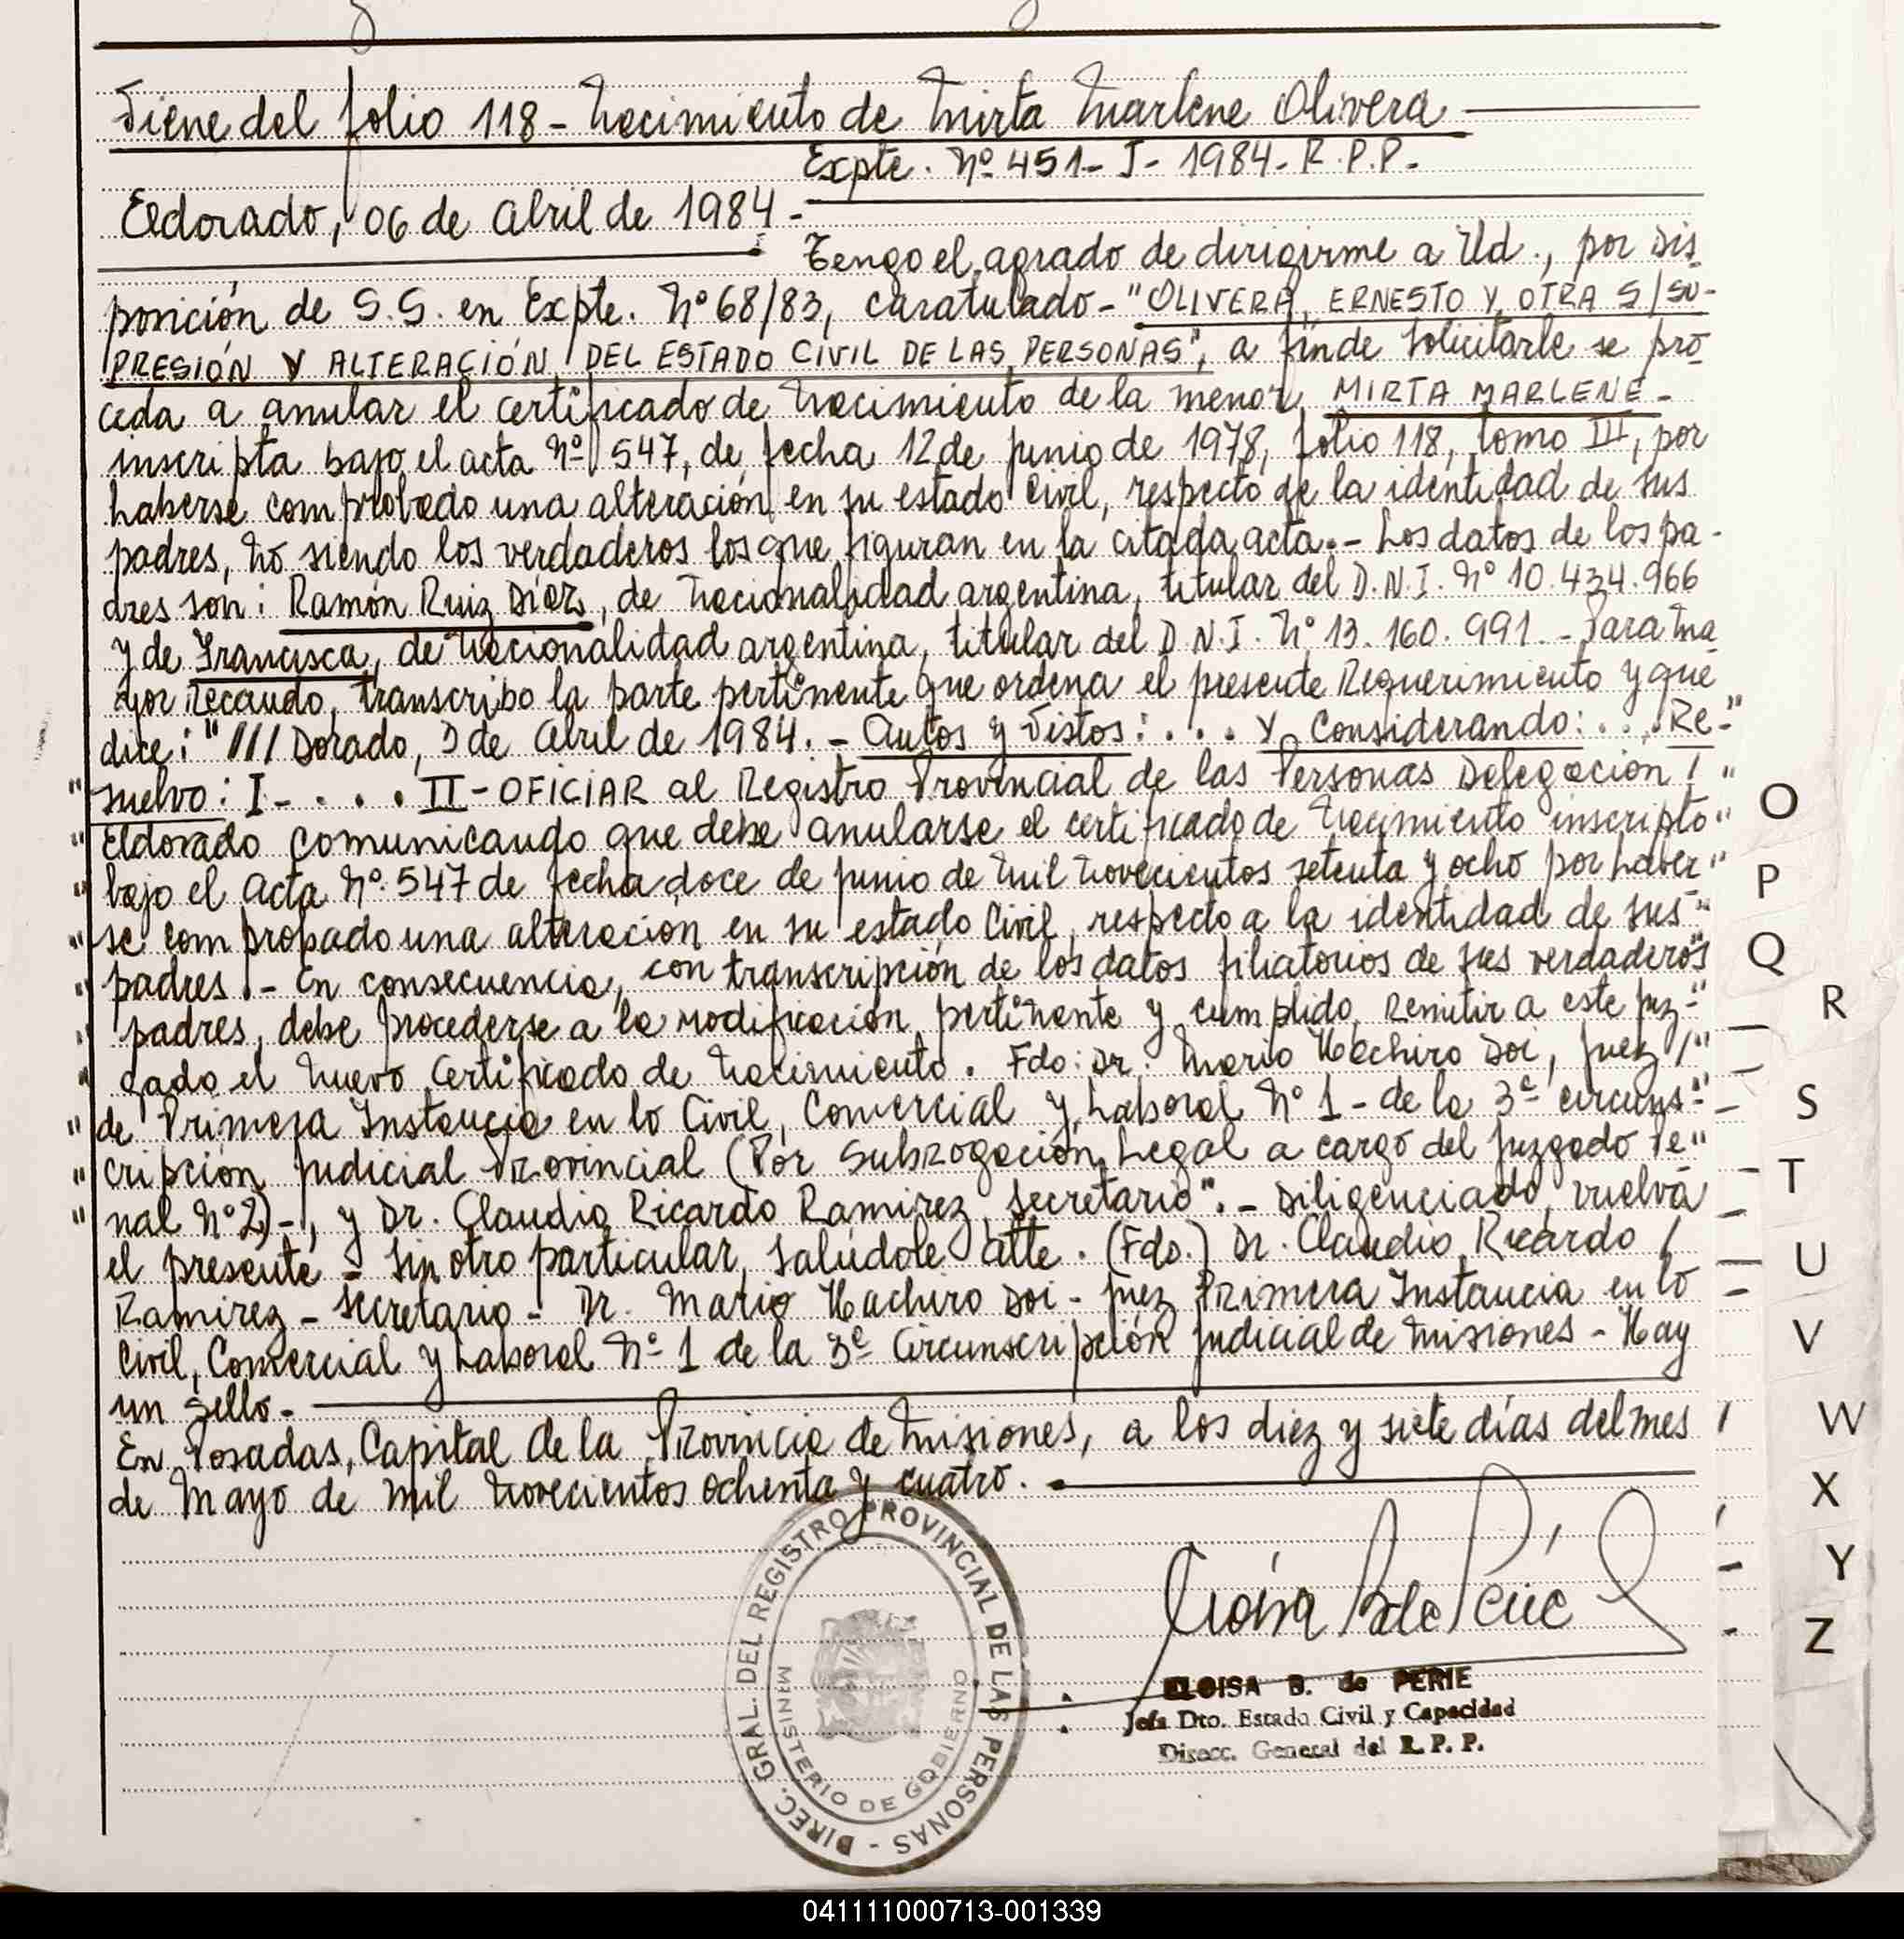 Viene del folio 118 - Nacimiento de Mirta Marlene Olivera
Expte. Nº 451 - J - 1984 - R.P.P. -
Eldorado, 06 de Abril de 1984 -
Tengo el agrado de dirigirme a Ud., por Dis-
posición de S.S. en Expte. Nº 68/83, caratulado - "OLIVERA, ERNESTO Y OTRA S/SU-
PRESIÓN Y ALTERACIÓN DEL ESTADO CIVIL DE LAS PERSONAS", a fin de solicitarle se pro
ceda a anular el certificado de Nacimiento de la menor MIRTA MARLENE -
inscripta bajo el acta Nº 547, de fecha 12 de Junio de 1978, folio 118, tomo III, por
haberse comprobado una alteración en su estado Civil, respecto de la identidad de sus
padres, No siendo los verdaderos los que figuran en la citada acta. - Los datos de los pa-
dres son: Ramón Ruiz Díaz, de Nacionalidad argentina, titular del D.N.I. Nº 10.434.966
y de Francisca, de Nacionalidad argentina, titular del D.N.I. Nº 13.160.991. - Para Ma
yor Recaudo, transcribo la parte pertinente que ordena el presente Requerimiento y que
dice: "///Dorado, 3 de Abril de 1984. - Autos y Vistos: . . . . Y Considerando: . . . Re-"
"suelvo: I - . . . . II - OFICIAR al Registro Provincial de las Personas Delegación / "
"Eldorado comunicando que debe anularse el certificado de Nacimiento inscripto"
"bajo el Acta Nº 547 de fecha doce de Junio de Mil Novecientos setenta y ocho por haber"
"se comprobado una alteracion en su estado Civil, respecto a la identidad de sus"
"padres. - En consecuencia, con transcripción de los datos filiatorios de sus verdaderos"
"padres, debe procederse a la modificación pertinente y cumplido, Remitir a este Juz-"
"gado el Nuevo Certificado de Nacimiento. Fdo: Dr. Mario Hachiro Doi, Juez /"
"de Primera Instancia en lo Civil, Comercial y Laboral Nº 1 - de la 3ª circuns-"
"cripción Judicial Provincial (Por Subrogación Legal a cargo del Juzgado Pe"
"nal Nº 2) -, y Dr. Claudio Ricardo Ramirez, Secretario". - Diligenciado, vuelva
el presente - Sin otro particular, salúdole Atte. (Fdo.) Dr. Claudio Ricardo /
Ramirez - Secretario - Dr. Mario Hachiro Doi - Juez Primera Instancia en lo
Civil, Comercial y Laboral Nº 1 de la 3ª Circunscripción Judicial de Misiones - Hay
un sello. -
En Posadas, Capital de la Provincia de Misiones, a los diez y siete días del mes
de Mayo de Mil Novecientos ochenta y cuatro. -
DIREC. GRAL. DEL REGISTRO PROVINCIAL DE LAS PERSONAS -
MINISTERIO DE GOBIERNO
ELOISA B. de PERIE
Jefa Dto. Estado Civil y Capacidad
Direcc. General del R. P. P.
O
P
Q
R
S
T
U
V
W
X
Y
Z
041111000713-001339